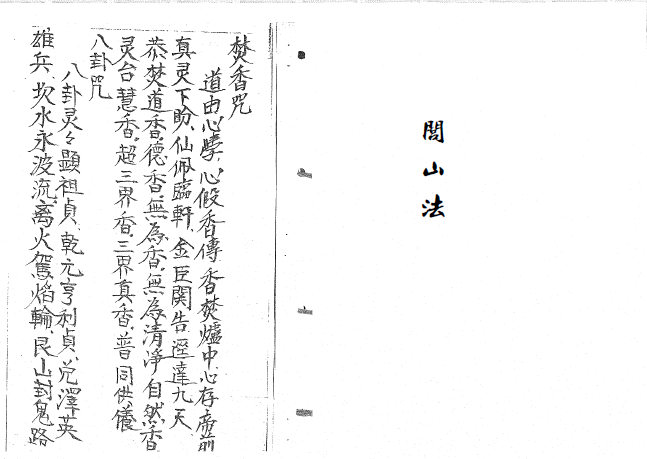 閭山法
焚香咒
道由心學、心假香傳、香焚爐中心存帝前
真灵下盼、仙佩臨軒、金臣関告、逕達九天
恭焚道香、德香、無為香、無為清淨自然香
灵台、慧香、超三界香、三界真香、普同供儀
八卦咒
八卦灵々顯祖貞、乾元亨利貞、兑澤英
雄兵、坎水永波流、离火駕焰輪、艮山封鬼路